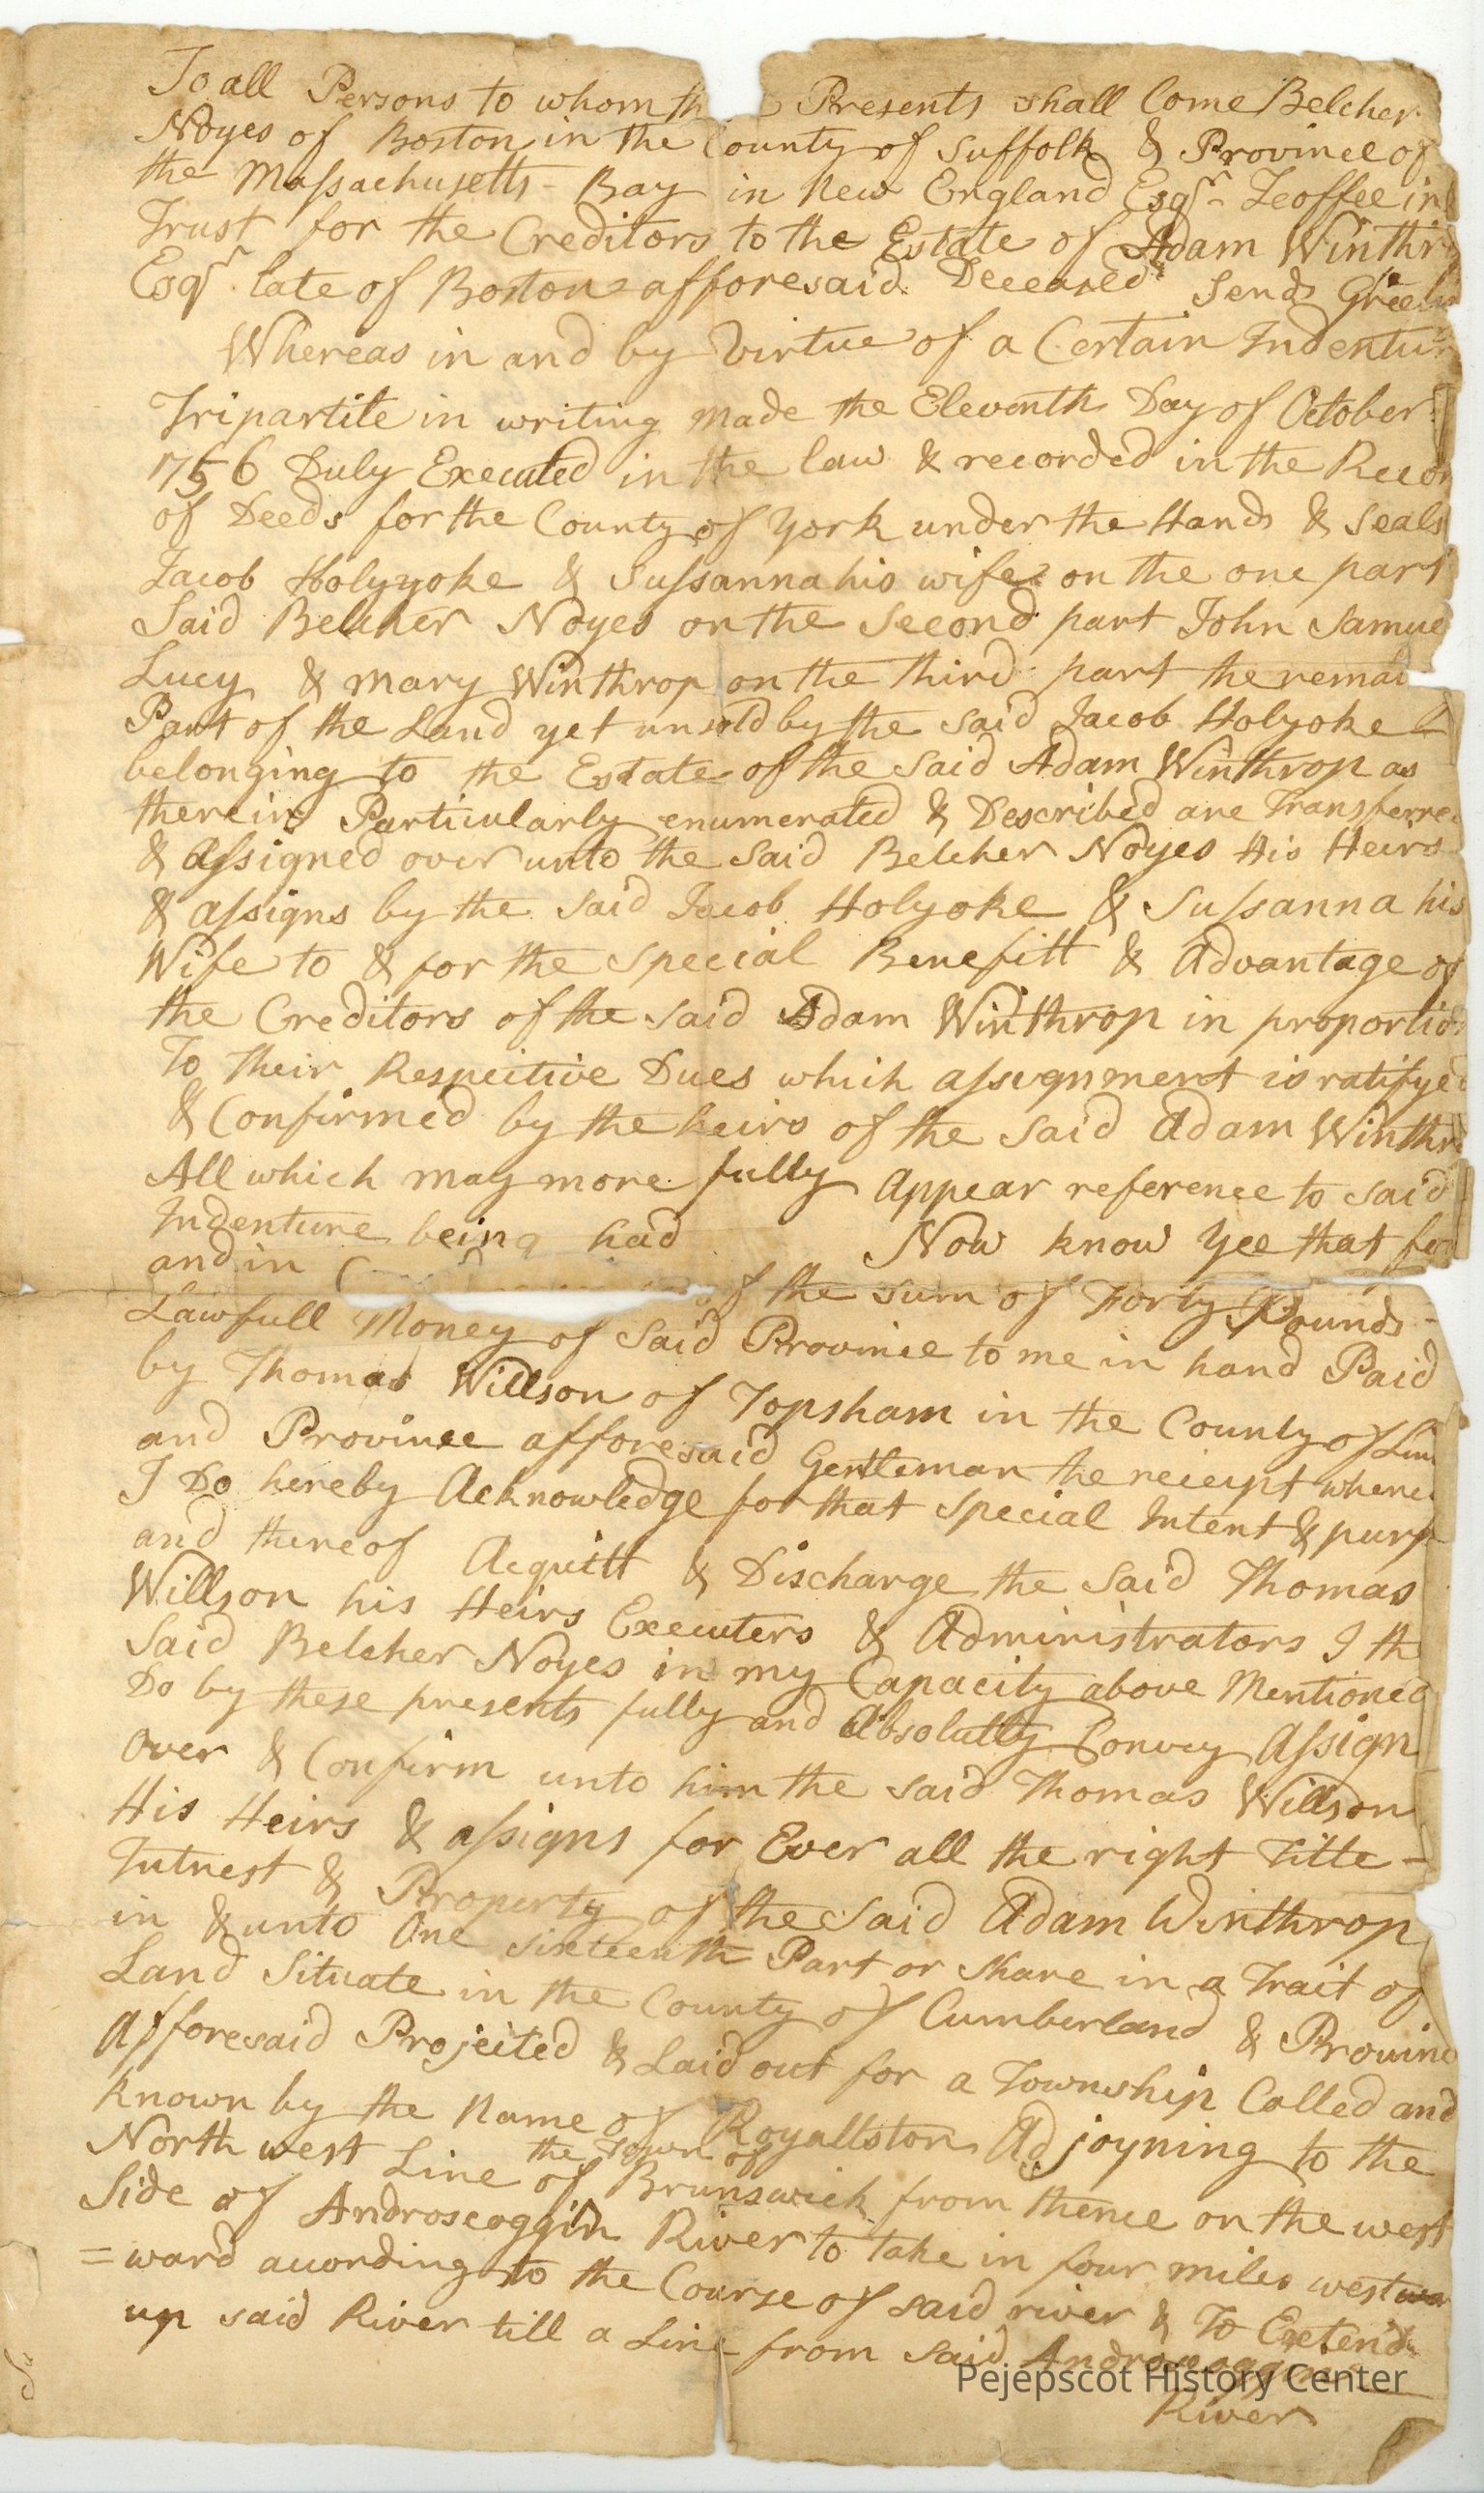 To all Persons to whom th Presents shall Come Belcher
Noyes of Boston in the County of Suffolk & Province of
the Massachusetts - Bay in New England Esqr. Feoffee in
Trust for the Creditors to the Estate of Adam Winthr
Esqr. late of Boston afforesaid Deceased Sends Greeti
Whereas in and by Virtue of a Certain Indentur
Tripartite in writing made the Eleventh Day of October
1756 Duly Executed in the law & recorded in the Recor
of Deeds for the County of York under the Hands & Seals
Jacob Holyyoke & Sussanna his wife on the one part
Said Belcher Noyes on the Second part John Samue
Lucy & Mary Winthrop on the third part the remai
Part of the Land yet unsold by the said Jacob Holyoke &
belonging to the Estate of the Said Adam Winthrop as
therein Particularly enumerated & Described are Transferre
& Assigned over unto the Said Belcher Noyes His Heirs
& assigns by the said Jacob Holyoke & Sussanna his
Wife to & for the Special Benefitt & Advantage of
the Creditors of the said Adam Winthrop in proportio
To their Respective Dues which assignment is ratifye
& Confirmed by the heirs of the Said Adam Winthr
All which may more fully Appear reference to said
Indenture being had Now know Yee that for
and in of the sum of Forty Pounds -
Lawfull Money of Said Province to me in hand Paid
by Thomas Willson of Topsham in the County of Lin
and Province afforesaid Gentleman the receipt where
I Do hereby Acknowledge for that Special Intent & purp
and thereof Acquitt & Discharge the Said Thomas
Willson his Heirs Executers & Administrators I th
Said Belcher Noyes in my Capacity above Mentioned
Do by these presents fully and Absolutly Convey Assign
Over & Confirm unto him the said Thomas Willson
His Heirs & assigns for Ever all the right Title -
Intrest & Property of the Said Adam Winthrop
in & unto One sixteenth Part or Share in a Trait of
Land Situate in the County of Cumberland & Provinc
Afforesaid Projected & Laid out for a Township Called and
known by the Name of Royallston Adjoyning to the
North west Line of the Town of Brunswick from thence on the west
Side of Androscoggin River to take in four miles westwar
=ward according to the Course of said river & To Extend
up said River till a Line from said Androscoggin
River
Pejepscot History Center